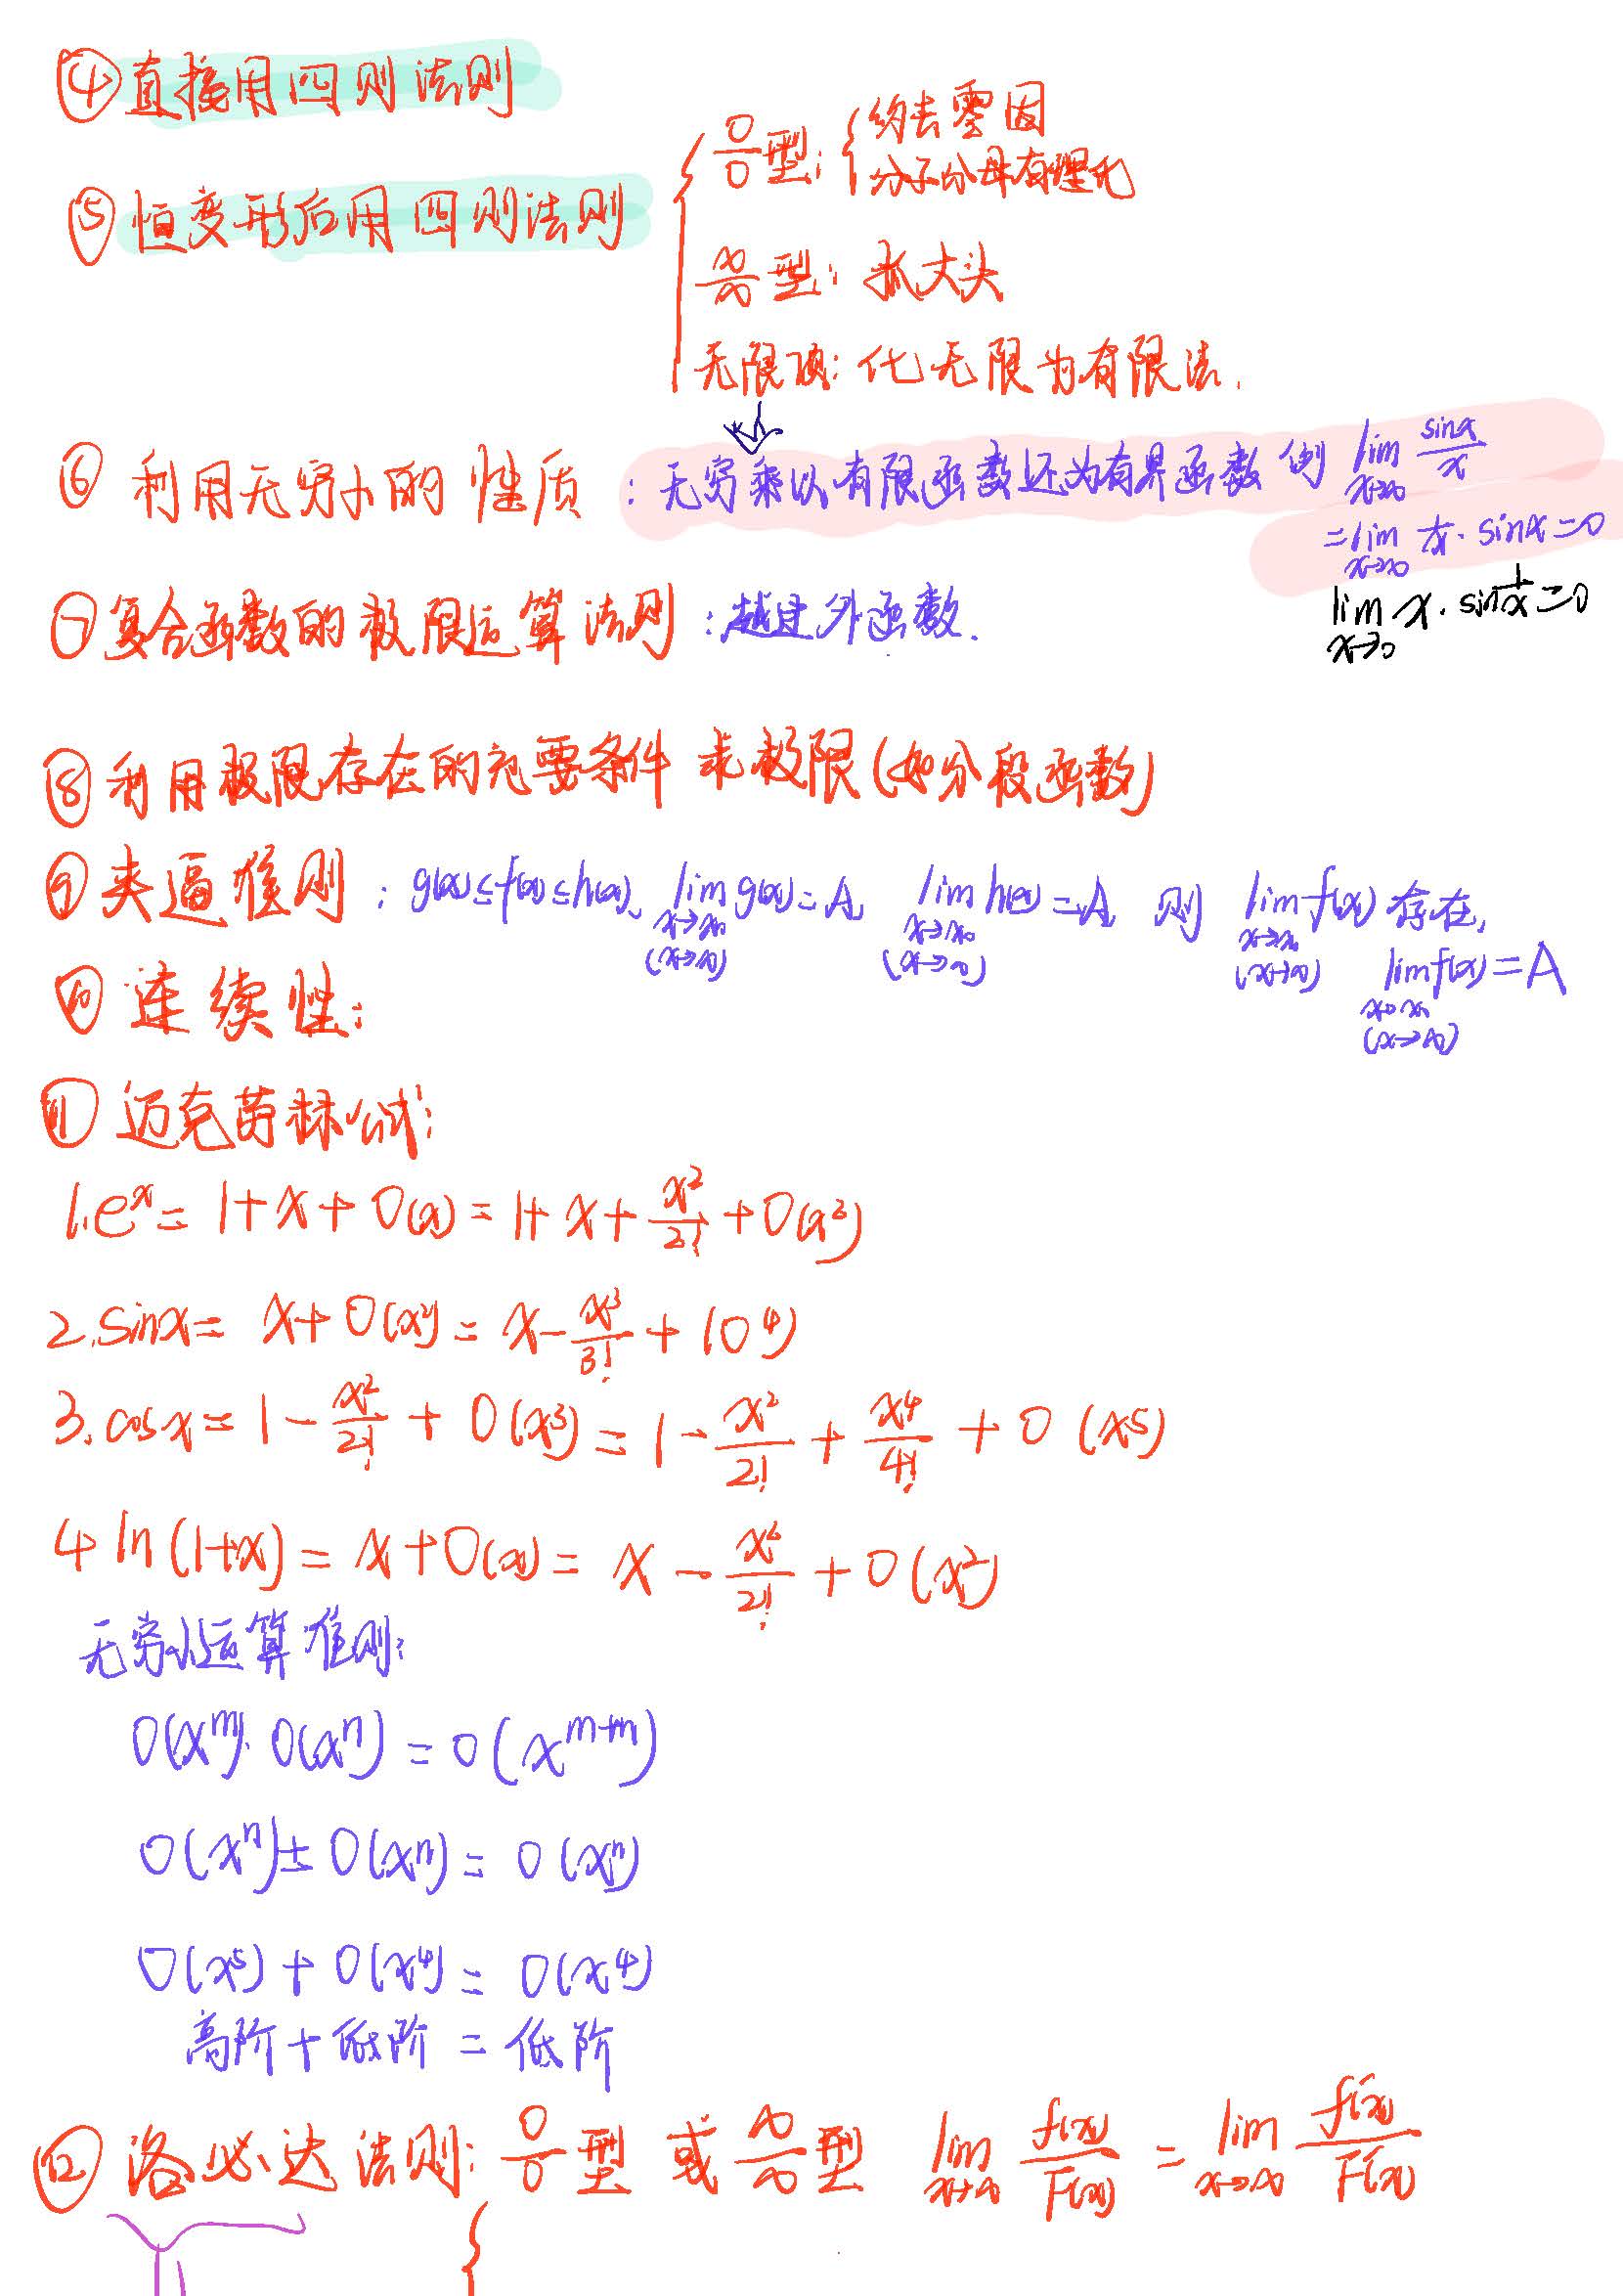 ④直接用四则法则
⑤恒变形后用四则法则
0/0型：{约去零因
分子分母有理化
∞/∞型：抓大头
无限项：化无限为有限法.
⑥利用无穷小的性质：无穷乘以有限函数还为有界函数 例 lim x→∞ sinx/x
=lim x→∞ 1/x·sinx=0
lim x→0 x·sin1/x=0
⑦复合函数的极限运算法则：越过外函数.
⑧利用极限存在的充要条件求极限(如分段函数)
⑨夹逼准则：g(x)≤f(x)≤h(x), lim x→x₀ (x→∞) g(x)=A, lim x→x₀ (x→∞) h(x)=A, 则 lim x→x₀ (x→∞) f(x)存在,
lim x→x₀ (x→∞) f(x)=A
⑩连续性：
⑪迈克劳林公式：
1.eˣ=1+x+0(x)=1+x+x²/2!+0(x²)
2.sinx=x+0(x²)=x-x³/3!+(0⁴)
3.cosx=1-x²/2!+0(x³)=1-x²/2!+x⁴/4!+0(x⁵)
4 ln(1+x)=x+0(x)=x-x²/2!+0(x²)
无穷小运算准则：
0(xᵐ)·0(xⁿ)=0(xᵐ⁺ⁿ)
0(xⁿ)±0(xⁿ)=0(xⁿ)
0(x⁵)+0(x⁴)=0(x⁴)
高阶+低阶=低阶
⑫洛必达法则：0/0型或∞/∞型 lim x→∞ f(x)/F(x)=lim x→∞ f'(x)/F'(x)